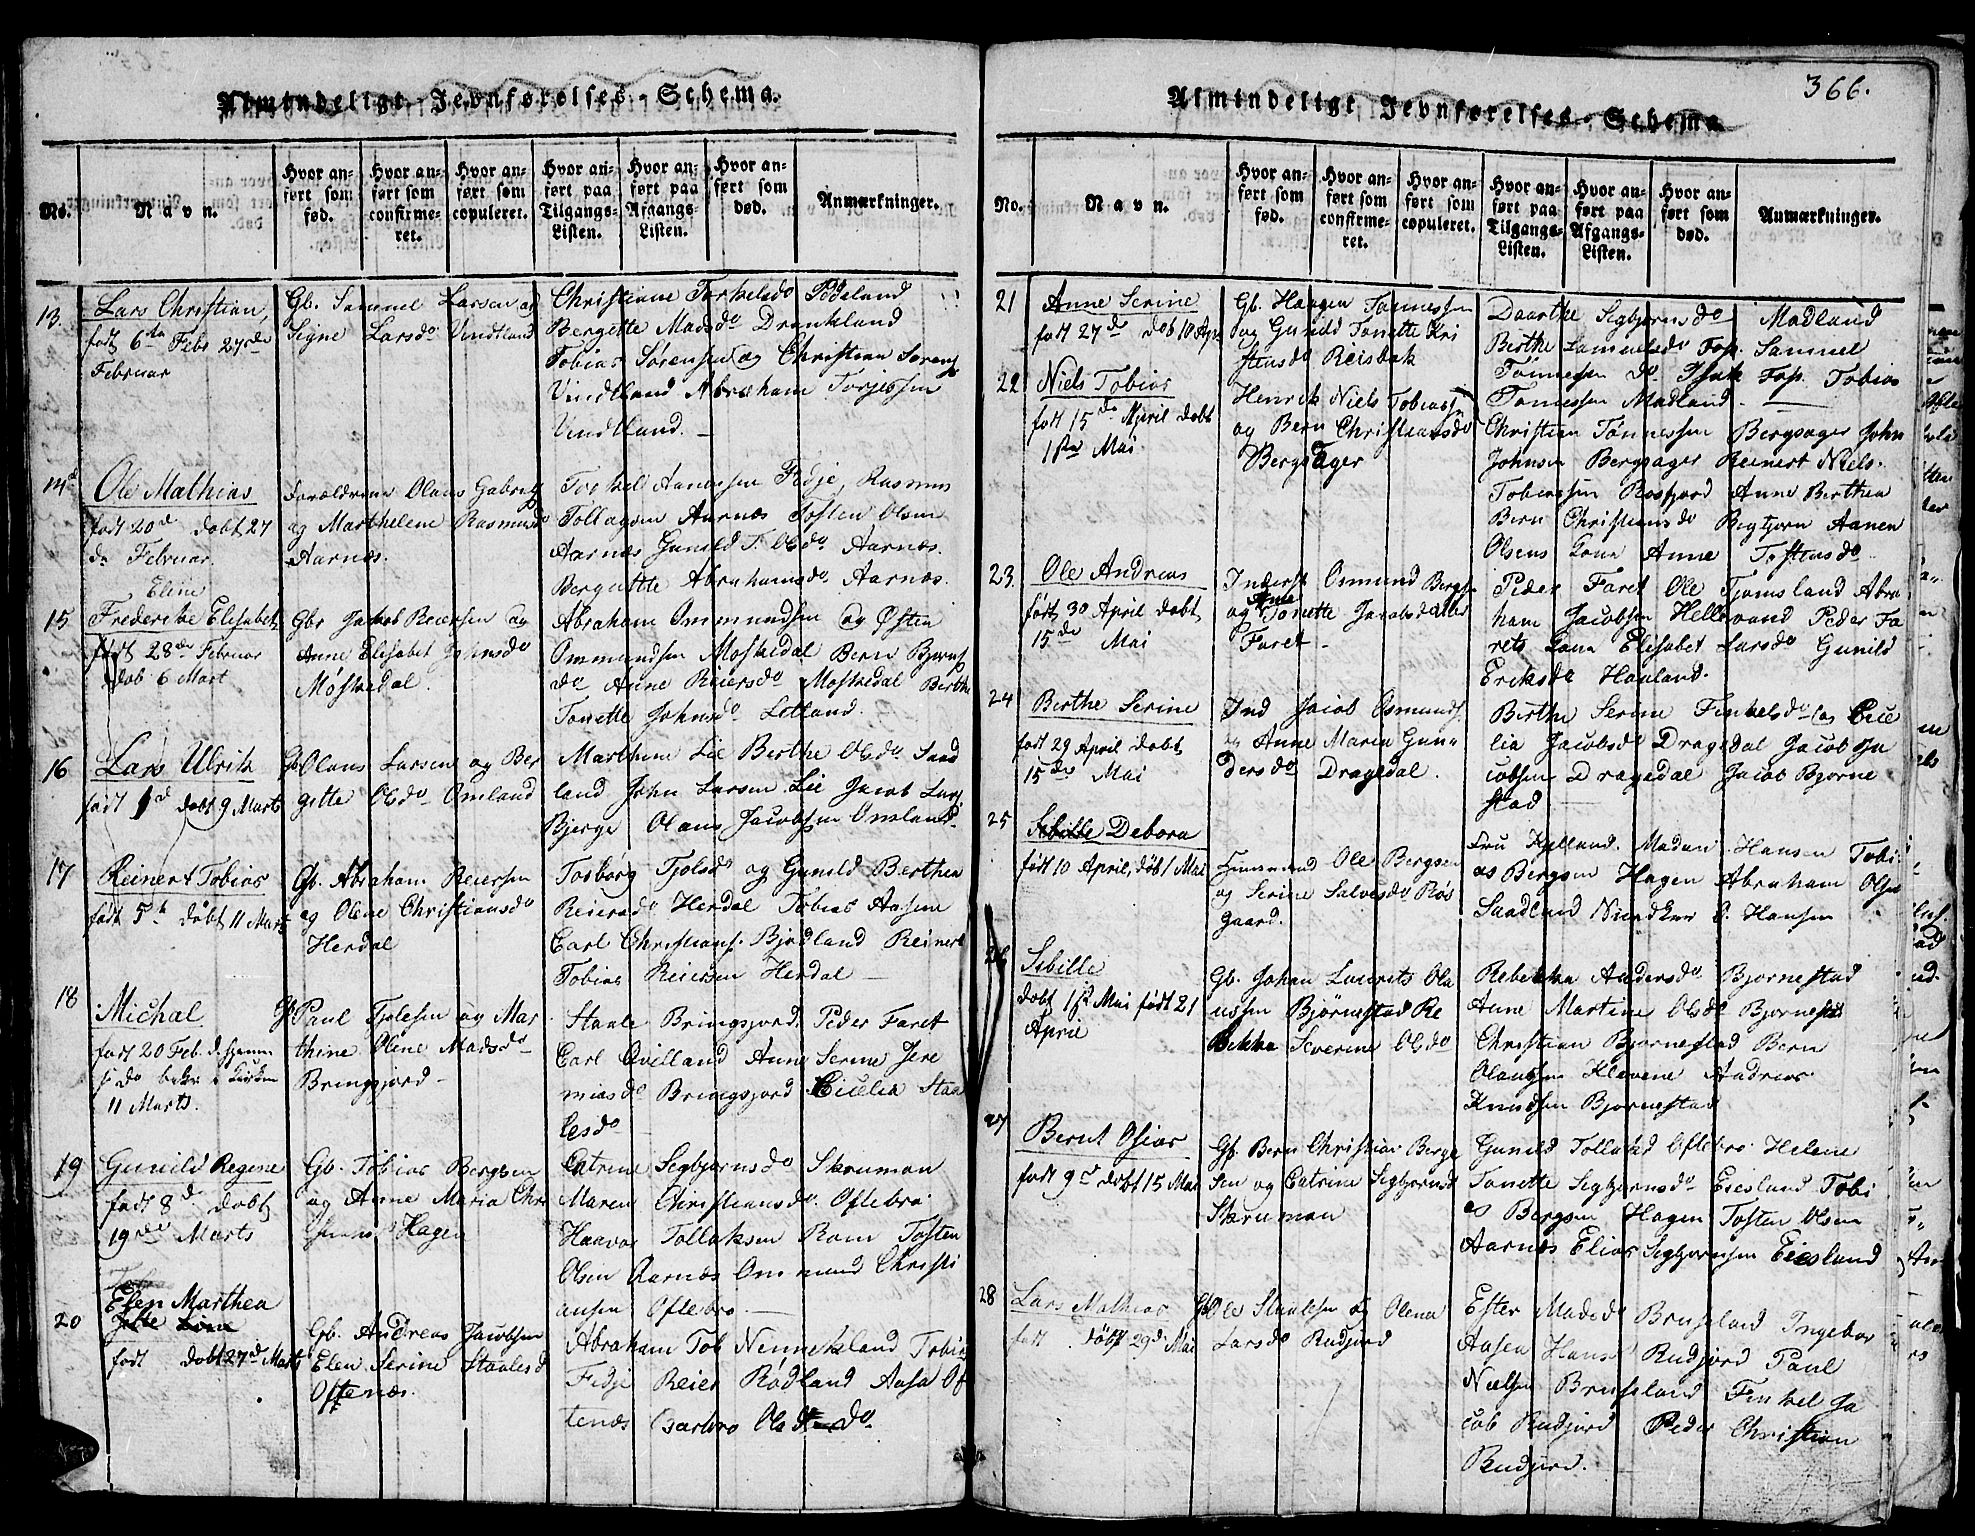 Almindeligt Jevnførelses-Schema.
No.
Navn.
Hvor anført som fød.
Hvor anført som confirmeret.
Hvor anført som copuleret.
Hvor anført paa Tilgangs-Listen.
Hvor anført paa Afgangs-Listen.
Hvor anført som død.
Anmærkninger.
13.
Lars Christian,
født 6te Febr 27de
Februar
Gb. Sammel Larsen og
Signe Larsdo Vindtland
Christiane Torkelsdo
Bergette Madsdo Drankland
Tobias Sørensen og Christian Sørens
Vindtland Abraham Torjessen
Vindtland. —
14
Ole Mathias
født 20de døbt 27
do Februar
Forældrene Olaus Gabriels
og Marthelene Rasmusdo
Aarnæs.
Torkel Aanensen Fedje, Rasmus
Tollagsen Aarnæs Tosten Olsen
Aarnæs Gunild T. Olsdo Aarnæs.
Bergitte Abrahamsdo Aarnæs.
15
Eline
Frederike Elisabet
født 28de Februar
døb 6 Mart
Gbr Jakob Reiersen og
Anne Elisabet Johnsdo
Møskedal.
Abraham Ommundsen og Østen
Ommundsen Moskedal Bern Bjørns
do Anne Reiersdo Moskedal Berthe
Tonette Johnsdo Letland.
16
Lars Ulrik
født 1d døbt 9 Marts
Gb Olaus Larsen og Ber
gitte Olsdo Omland
Marthem Lie Berthe Olsdo Sand
land John Larsen Lie Jacob Lars
Bjerge Olaus Jacobsen Omland
17
Reinert Tobias
født 5te døbt 11 Mart
Gb. Abraham Reiersen
og Olene Christiansdo
Herdal
Tosborg Tjolsdo og Gunild Berthea
Reiersdo Herdal Tobias Aasen
Carl Christians. Bjødland Reinert
Tobias Reiersen Herdal —
18
Michal
født 20 Feb. d. hjemme
do bekr i Kirken
11 Marts.
Gf Paul Tjolesen og Mar
thine Olene Madsdo
Bringsjord —
Staale Bringsjord, Peder Faret
Carl Qvilland Anne Serine Jere
miasdo Bringsjord Cicelia Staa
lesdo
19
Gunild Regine
født 8de døbt
19de Marts
Gb. Tobias Bergsen
og Anne Maria Chri
Hagen
Catrine Segbjørnsdo Skruman
Maren Christiansdo. Oftebro.
Haavar Tollaksen Rom Tosten
Olsen Aarnæs Ommund Christi
ansen Oftebro —
20
Elen Marthea
født døbt 27de Marts
Gb. Andreas Jacobsen
Elen Serine Staalesd
Oftenæs.
Abraham Tob Nennekland Tobias
Fedje Reier Rødland Aasa Of
tenæs Barbro Olsd do.
366.
Almindeligt Jevnførelses-Schema
No.
Navn.
Hvor anført som fød.
Hvor anført som confirmeret.
Hvor anført som copuleret.
Hvor anført paa Tilgangs-Listen.
Hvor anført paa Afgangs-Listen.
Hvor anført som død.
Anmærkninger.
21
Anne Serine
født 27de døb 10 Apr
Gb. Haagen Tønnessen
og Gunild Tonette Kri
stensdo Reisbak
Daarthe Segbjørnsdo Madland
Berthe Sammelsdo Fop. Sammel
Tønnessen do Isak Fop. Tobias
Tønnessen Madland. —
22
Niels Tobias
født 15de April døbt
1ste Mai
Henrik Niels Tobiass.
og Bern Christiansdo
Bergsager
Christian Tønnessen Bergsager John
Johnsen Bergsager Reinert Niels.
Tobiassen Rosfjord Anne Berthea
Bern Christiansdo Begbjørn Aanen
Olsens Kona Anne Tostensdo
23
Ole Andreas
født 30 April døbt
15de Mai
Inderst Osmund Bergs
og Anne Tonette Jacobsdatter
Faret —
Peder Faret Ole Tjomsland Abra
ham Jacobsen Hellevand Peder Fa
rets Kona Elisabet Larsdo Gunild
Eriksdo Haaland.
24
Berthe Serine
født 29 April døbt
15de Mai
Ind Jacob Osmunds.
og Anne Maria Gun
dersdo Dragedal.
Berthe Serine Finkelsdo og Cice
lia Jacobsdo Dragedal Jacob Ja
cobsen Dragedal Jacob Bjørne
stad
25
Sibille Debora
født 10 April, døb 1 Mai
Huusmand Ole Bergsen
og Serine Salvesdo Røs
gaard.
Fru Kjelland, Madam Hansen Tobi
as Bergsen Hagen Abraham Olsen
Saadland Niendker O. Hansen
26
Sibille
døbt 1st Mai født 21
Aprie
Gb. Johan Laurits Ola
ussen Bjørnestad Re
bekka Severine Olsdo
Rebekka Andersdo Bjørnestad
Anne Martine Olsdo Bjørnestad
Christian Bjørnestad Bern
Olaussen Klevene Andreas
Knudsen Bjørnestad
27
Bernt Osias
født 9de døbt 15 Mai
Gf. Bern Christian Berg
sen og Catrine Segbjørnsd
Skruman
Gunild Tollaksd Oftebro Helene
Tonette Segbjørnsdo Eiesland Tobi
as Bergsen Hagen Tosten Olsen
Aarnæs Elias Segbjørnsen Eiesland
28
Lars Mathias
født døbt 29de Mai
Gb Ole Staalesen og Olena
Larsdo Rudjord
Ester Madsd Brusland Ingebor
Aasen Hans Rudjord Paul
Nielsen Brusland Finkel Ja
cob Rudjord Peder Christian
Rudjord.